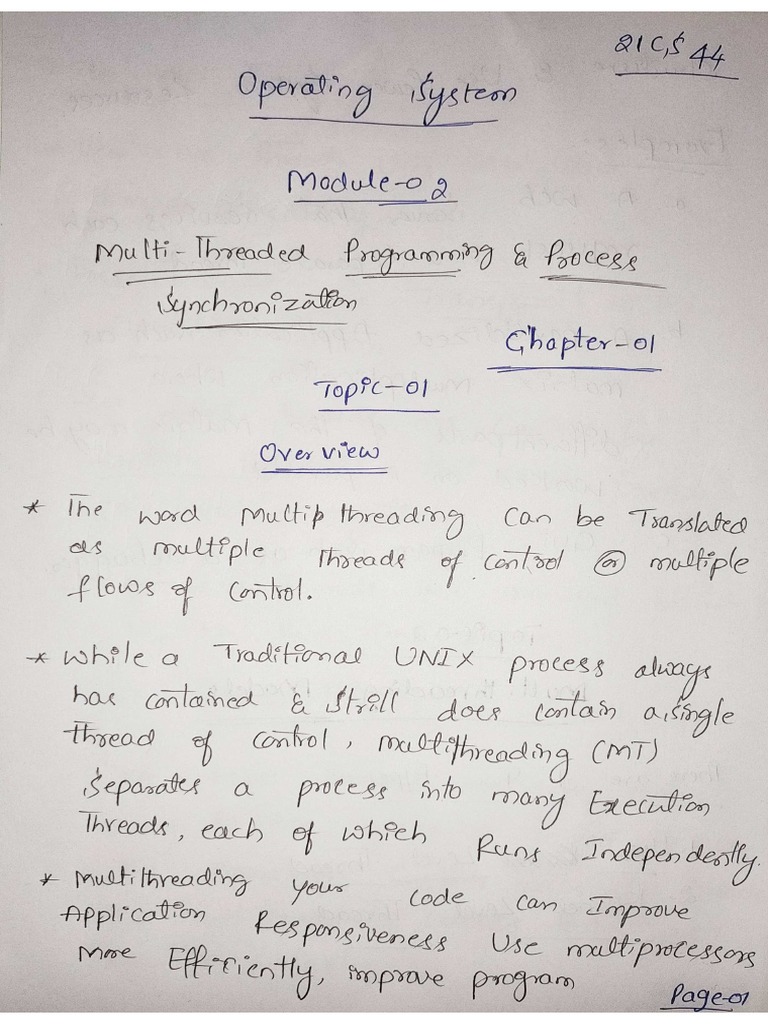 21CS44
Operating System
Module-02
Multi-Threaded Programming & Process
Synchronization
Chapter-01
Topic-01
Overview
* The word multip threading can be Translated
as multiple threads of control or multiple
flows of control.
* While a Traditional UNIX process always
has contained & Strill does contain a single
thread of control, multithreading (MT)
Separates a process into many Execution
Threads, each of which Runs Independently.
* Multithreading your code can Improve
Application Responsiveness Use multiprocessors
More Efficiently, improve program
Page-01